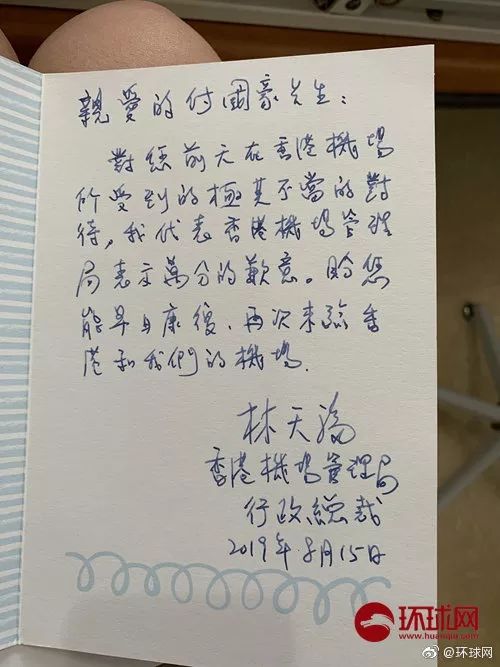 親愛的付國豪先生：
對您前天在香港機場
所受到的極其不當的對
待，我代表香港機場管理
局表示萬分的歉意。盼您
能早日康復、再次來臨香
港和我們的機場.
林天福
香港機場管理局
行政總裁
2019年8月15日
环球网
www.huanqiu.com
@环球网